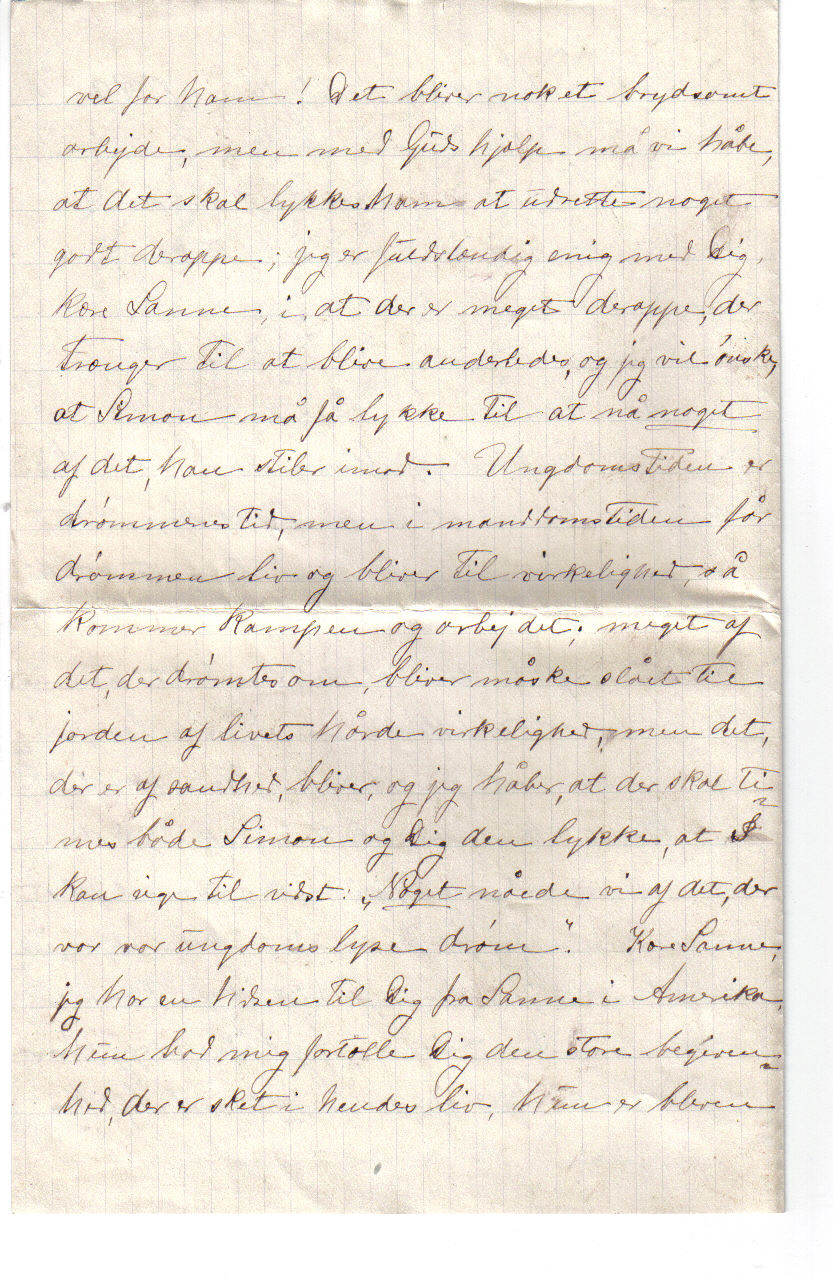 vel for ham! Det bliver nok et brydsomt
arbejde, men med Guds hjælp må vi håbe,
at det skal lykkes ham at udrette noget
godt deroppe; jeg er fuldstændig enig med Dig,
kære Sanne, i, at der er meget deroppe, der
trænger til at blive anderledes, og jeg vil ønske,
at Simon må få lykke til at nå noget
af det, han stiler imod. Ungdomstiden er
drømmenes tid, men i manddomstiden får
drømmen liv og bliver til virkelighed, så
kommer kampen og arbejdet; meget af
det, der drømtes om, bliver måske slået til
jorden af livets hårde virkelighed, men det,
dér er af sandhed, bliver, og jeg håber, at der skal ti=
mes både Simon og Dig den lykke, at I
kan sige til vidst: „Noget nåede vi af det, der
var vor ungdoms lyse drøm”. Kære Sanne,
jeg har en hilsen til Dig fra Sanne i Amerika,
hun bad mig fortælle Dig den store begiven=
hed, der er sket i hendes liv, hun er bleven